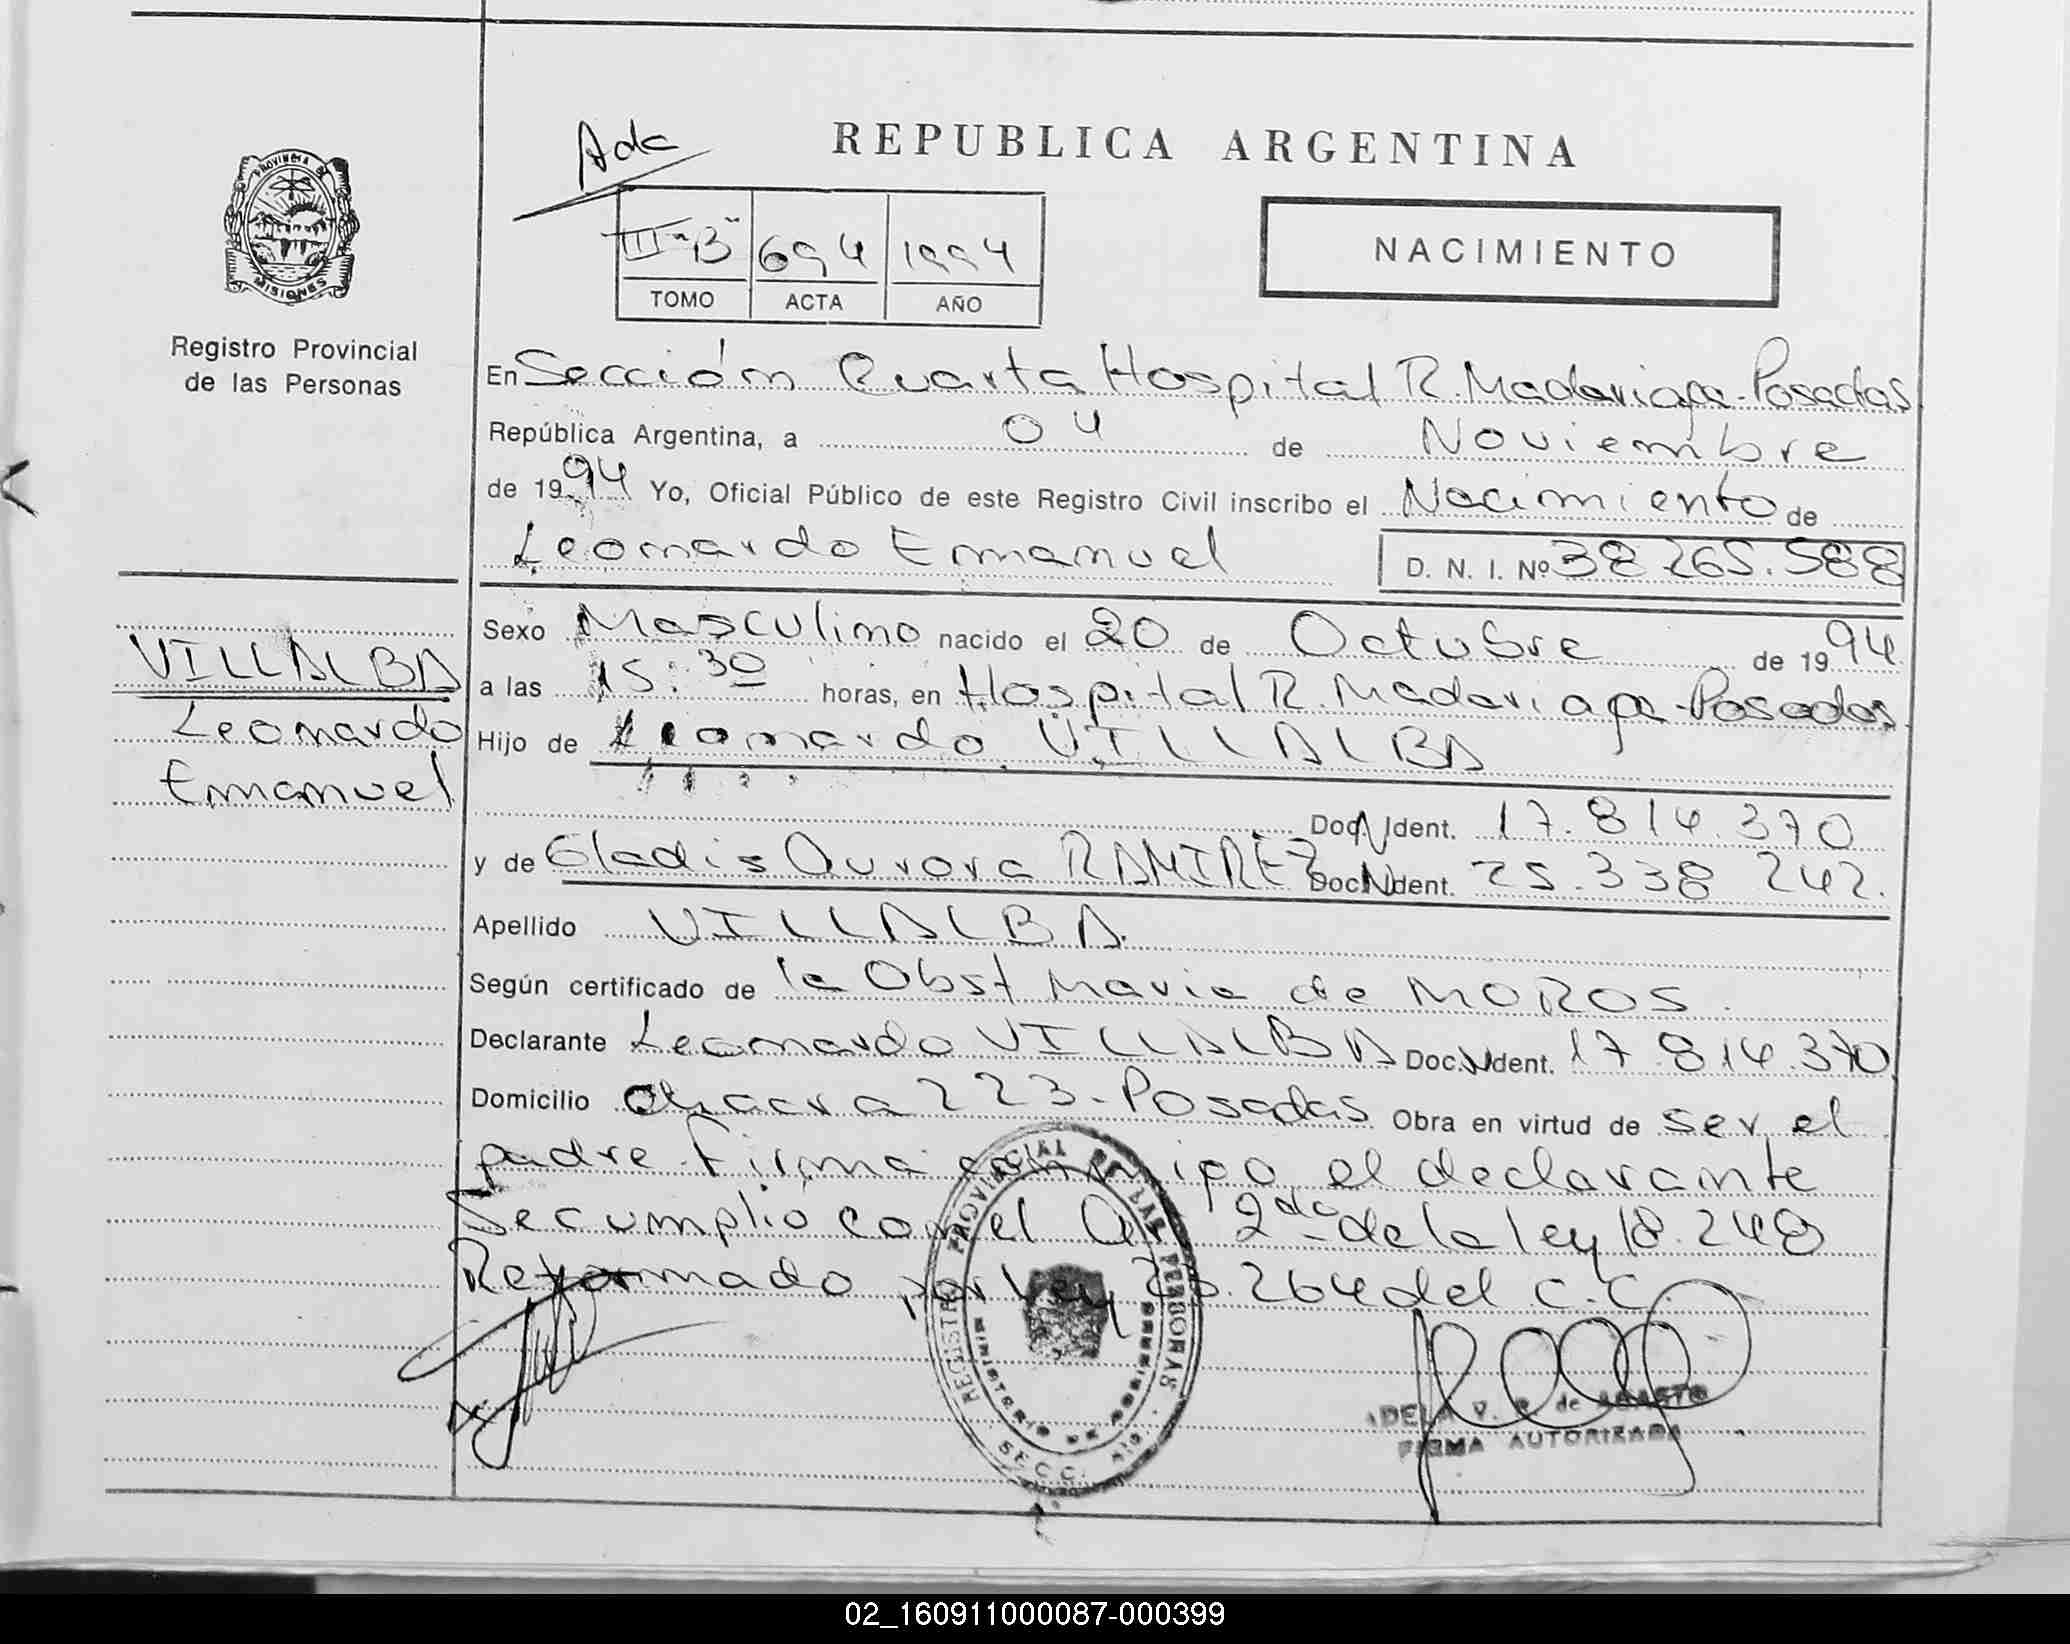 REPUBLICA ARGENTINA
Ada
III "B" 694 1994
TOMO ACTA AÑO
NACIMIENTO
PROVINCIA DE
MISIONES
Registro Provincial
de las Personas
En Sección Cuarta Hospital R. Madariaga-Posadas
República Argentina, a 04 de Noviembre
de 1994 Yo, Oficial Público de este Registro Civil inscribo el Nacimiento de
Leonardo Emanuel D. N. I. Nº 38 265.588
VILLALBA
Leonardo
Emanuel
Sexo Masculino nacido el 20 de Octubre de 1994
a las 15:30 horas, en Hospital R. Madariaga-Posadas.
Hijo de Leonardo VILLALBA
Doc. N Ident. 17.814.370
y de Gladis Aurora RAMIREZ Doc. N Ident. 25.338 242.
Apellido VILLALBA.
Según certificado de la Obst Maria de MOROS.
Declarante Leonardo VILLALBA Doc. N Ident. 17.814.370
Domicilio chacra 223-Posadas Obra en virtud de ser el
padre. Firma conmigo el declarante
Se cumplio con el Art 2do de la ley 18.248
Reformado por ley 23.264 del C.C.
REGISTRO PROVINCIAL DE LAS PERSONAS
MINISTERIO DE GOBIERNO
SECC.
ADELA V. de
FIRMA AUTORIZADA
02_160911000087-000399